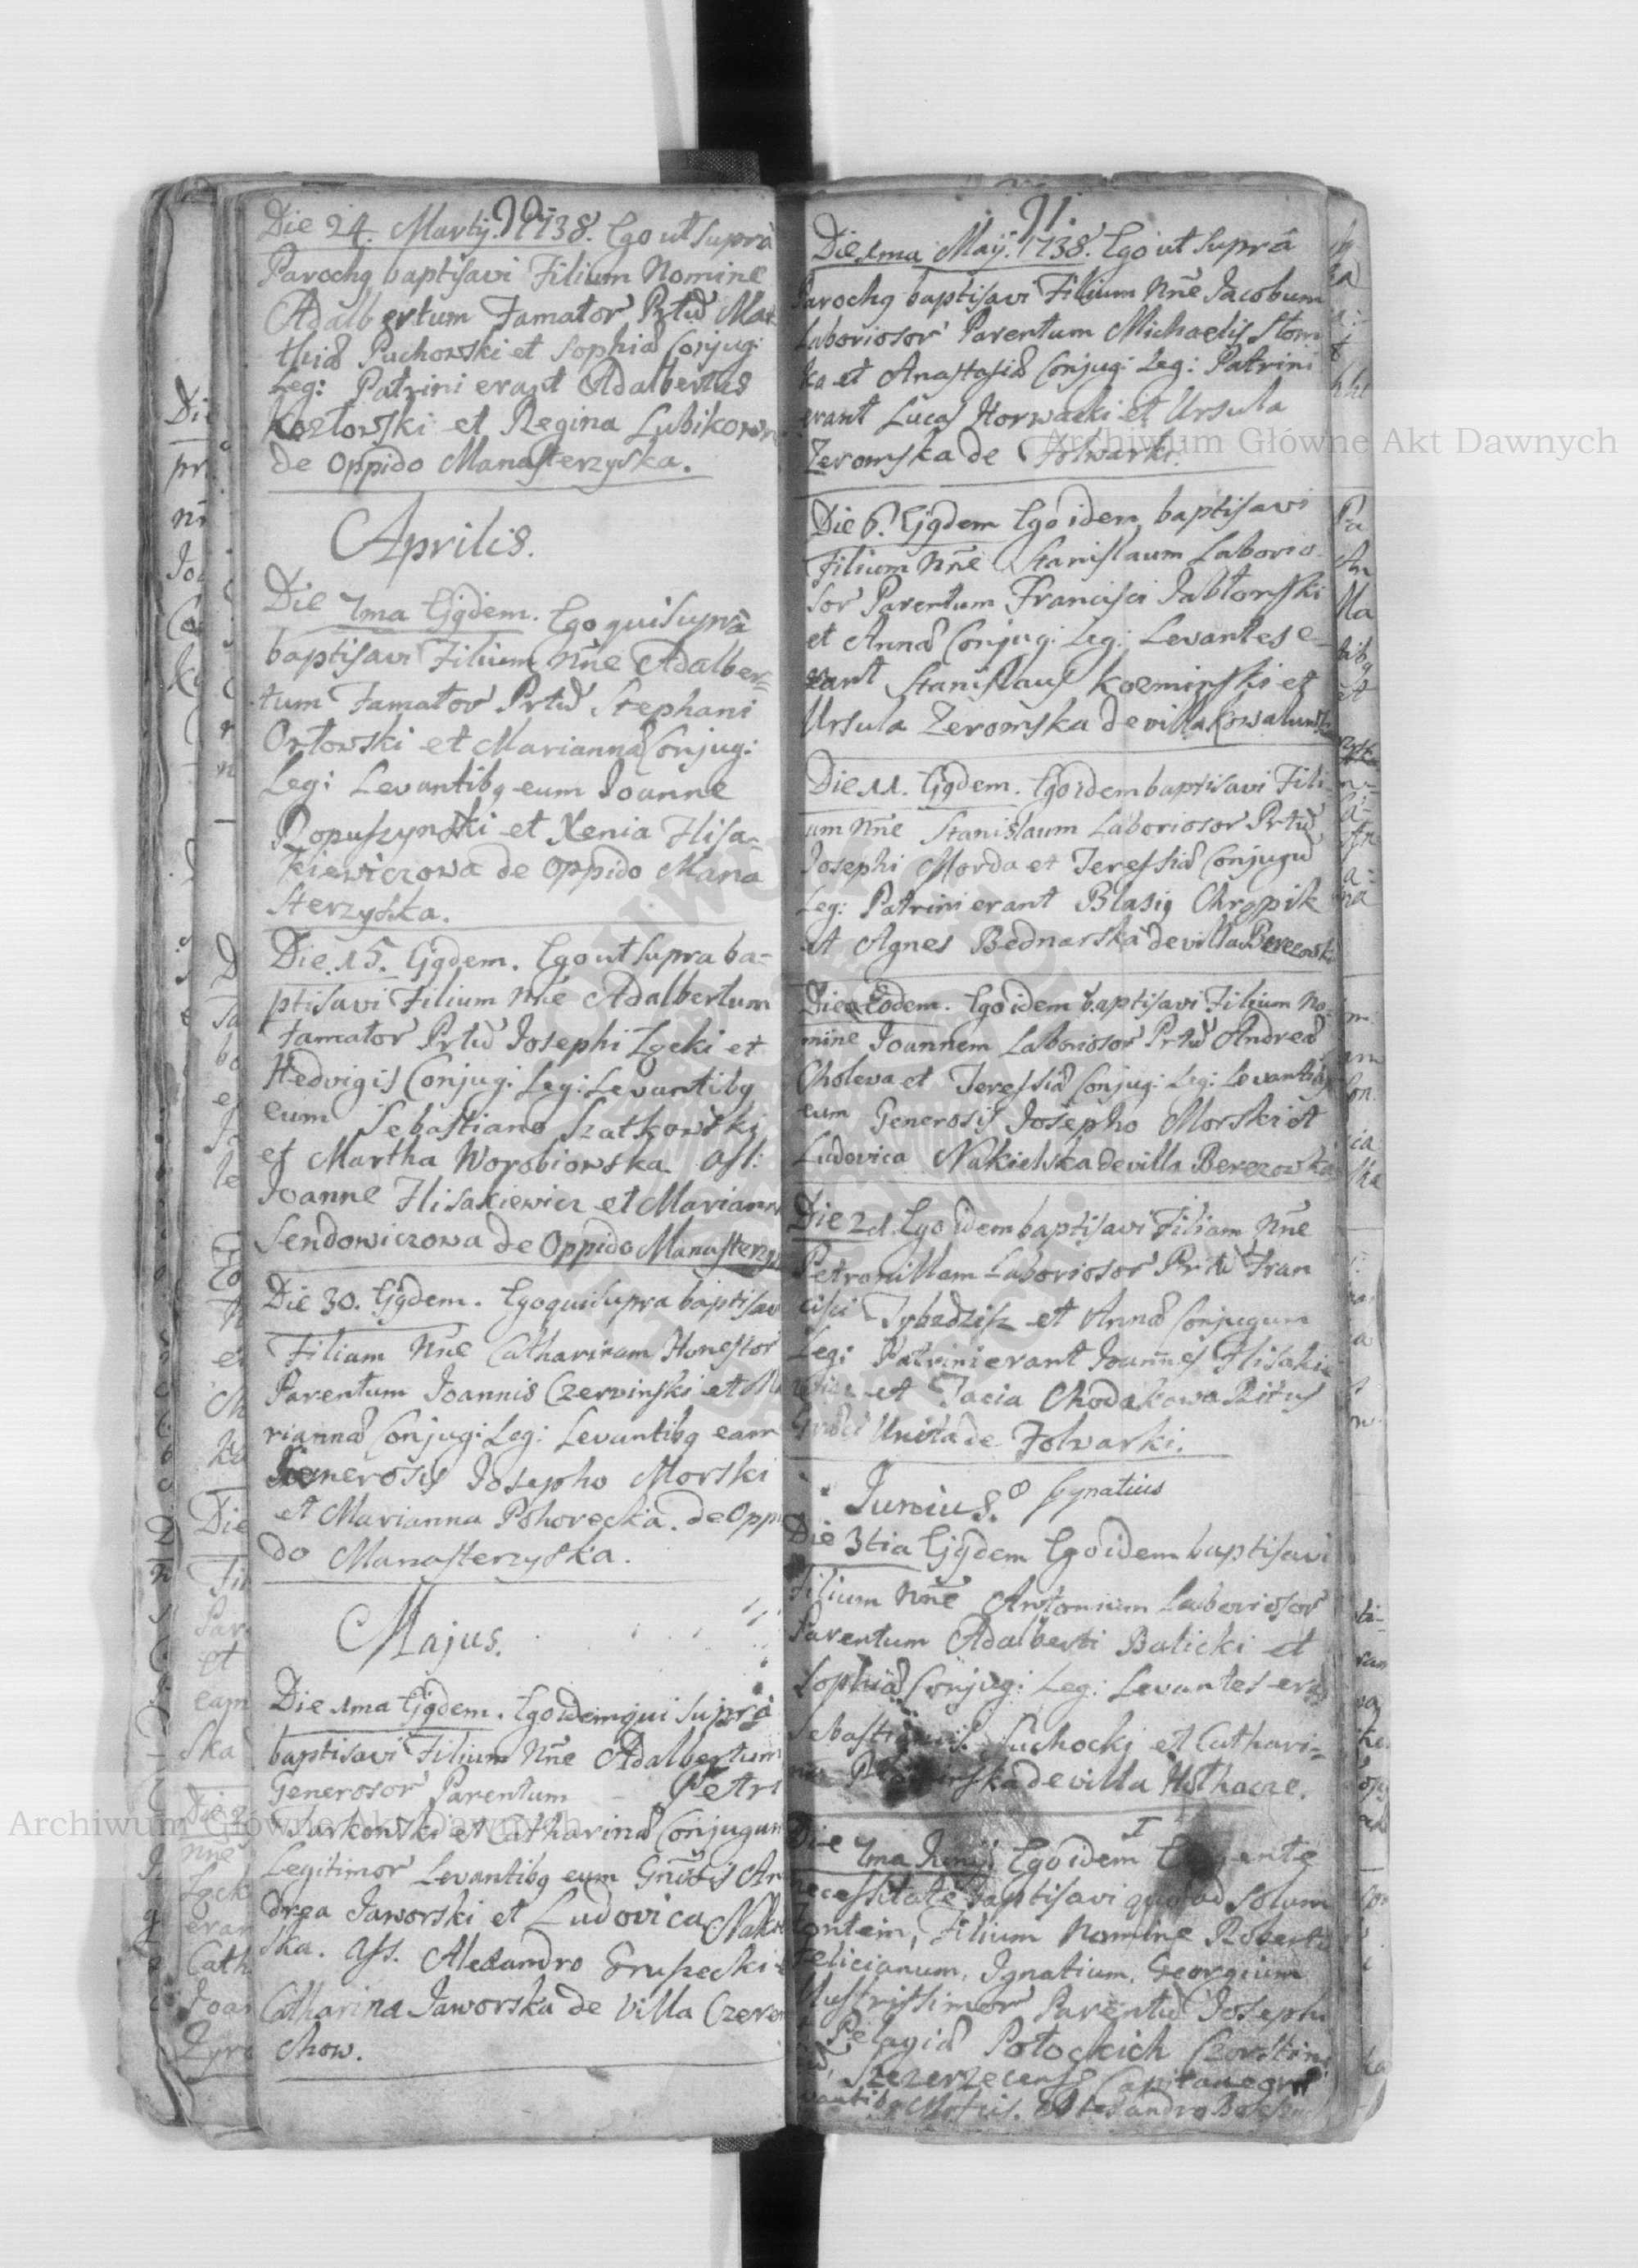 Die 24. Martij. 1738. Ego ut Supra
Parochq baptisavi Filium Nomine
Adalbertum Famator Prtũ Mat
thiæ Puchowski et Sophiæ Conjug:
Leg: Patrini erant Adalbertus
Kozłowski et Regina Lubikown
de Oppido Manasterzyska.
Aprilis.
Die 7ma Ejqdem. Ego qui Supra
baptisavi Filium Nñe Adalber=
tum Famator Prtũ Stephani
Orłowski et Mariannæ Conjug:
Leg: Levantibq eum Joanne
Ropuszynski et Xenia Ilisa=
kiewiczowa de Oppido Mana
sterzyska.
Die 15. Ejqdem. Ego ut supra ba=
ptisavi Filium Nñe Adalbertum
Famator Prtũ Josephi Zgcki et
Hedvigis Conjug: Leg: Levantibq
eum Sebastiano Szatkowski
et Martha Worobiowska. Ass:
Joanne Ilisakiewicz et Mariann
Sendowiczowa de Oppido Manasterzy
Die 30. Ejqdem. Ego qui supra baptisav
Filiam Nñe Catharinam Honestor
Parentum Joannis Czervinski et Ma
riannæ Conjug: Leg: Levantibq eam
Generosis Josepho Morski
et Marianna Pohorecka. de Oppi
do Manasterzyska.
Majus.
Die 1ma Ejqdem. Ego idem qui supra
baptisavi Filium Nñe Adalbertum
Generosor Parentum Petri
Tarkowski et Catharinæ Conjugum
Legitimor Levantibq eum Gnõsis An
drea Jaworski et Ludovica Nakie
ska. Ass. Alexandro Grupecki e
Catharina Jaworska de Villa Czerem
chow.
71.
Die 1ma Maij. 1738. Ego ut supra
Parochq baptisavi Filium Nñe Jacobum
Laboriosor Parentum Michaelis Stom
ka et Anastasiæ Conjug: Leg: Patrini
erant Lucas Horwacki et Ursula
Zeromska de Folwarki.
Die 6. Ejqdem Ego idem baptisavi
Filium Nñe Stanislaum Laborio
sor Parentum Francisci Jabłonski
et Annæ Conjug: Leg: Levantes e=
rant Stanislaus Kozminski et
Ursula Zeromska de villa Kowalowka
Die 11. Ejqdem. Ego idem baptisavi Fili
um Nñe Stanislaum Laboriosor Prtũ
Josephi Morda et Teressiæ Conjugũ
Leg: Patrini erant Blasiq Chrapik
et Agnes Bednarska de villa Berezowka
Die eodem. Ego idem baptisavi Filium No
mine Joannem Laboriosor Prtũ Andreæ
Choleva et Teressiæ Conjug: Leg: Levantibq
eum Generosis Josepho Morski et
Ludovica Nakielska de villa Berezowka
Die 21. Ego idem baptisavi Filiam Nñe
Petronillam Laboriosor Prtũ Fran
cisci et Annæ Conjugum
Leg: Patrini erant Joannes Ilisakie
wicz et Tacia Chodakowa Ritus
Græci Unita de Folwarki.
Junius. Ignatius
Die 3tia Ejqdem Ego idem baptisavi
Filium Nñe Antonium Laboriosor
Parentum Adalberti Balicki et
Sophiæ Conjug: Leg: Levantes erant
Sebastianus Suchocki et Cathari=
na de villa Huthacze.
Die 7ma Junij Ego idem Urgente
necessitate baptisavi quoad solum
Fontem, Filium Nomine Robertu
Felicianum, Ignatium, Georgium
Illustrissimor Parentũ Josephi
Pelagiæ Potockich
Capitaneor
vantibq Alexandro
Archiwum Główne Akt Dawnych
Archiwum Główne Akt Dawnych